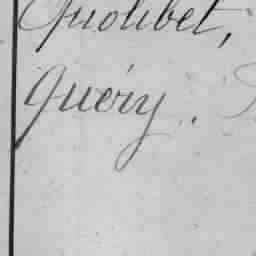 Quolibet,
Quéry.